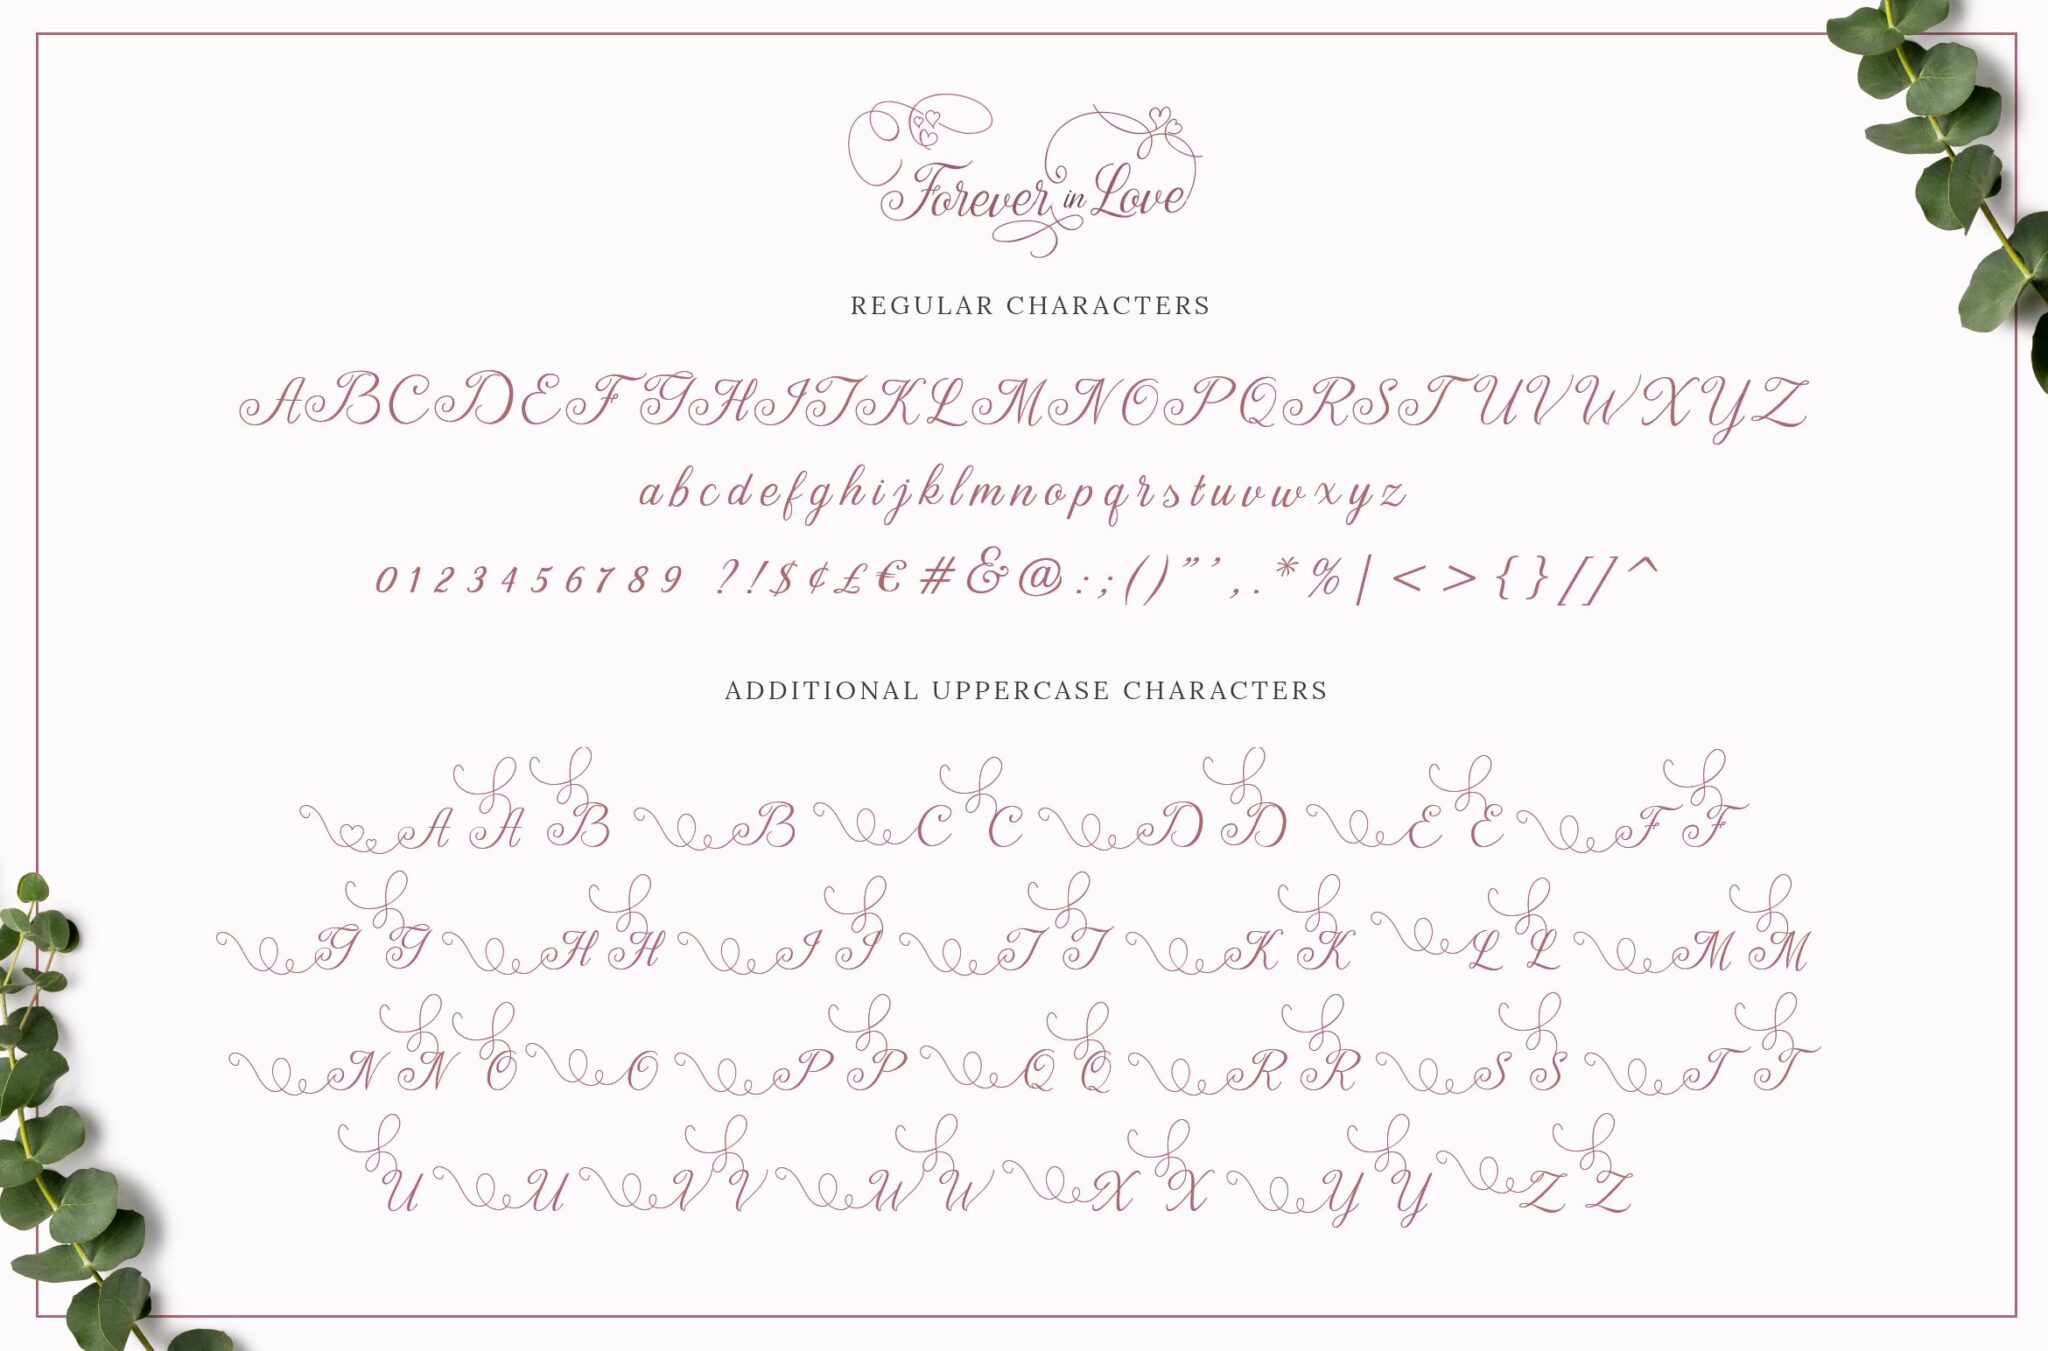 Forever in Love
REGULAR CHARACTERS
ABCDEFGHIJKLMNOPQRSTUVWXYZ
abcdefghijklmnopqrstuvwxyz
0123456789 ?!$¢£€#&@:;()"',.*%|<>{}[]^
ADDITIONAL UPPERCASE CHARACTERS
A A B B C C D D E E F F
G G H H I I J J K K L L M M
N N O O P P Q Q R R S S T T
U U V V W W X X Y Y Z Z